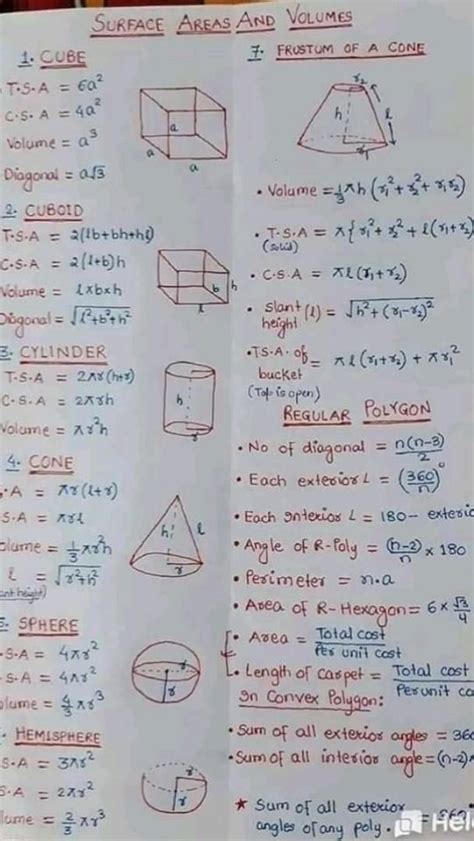 SURFACE AREAS AND VOLUMES
1. CUBE
T.S.A = 6a²
C.S.A = 4a²
Volume = a³
Diagonal = a√3
a
a
a
2. CUBOID
T.S.A = 2(lb+bh+hl)
C.S.A = 2(l+b)h
Volume = l×b×h
Diagonal = √l²+b²+h²
h
b
l
3. CYLINDER
T.S.A = 2πr(h+r)
C.S.A = 2πrh
Volume = πr²h
h
r
4. CONE
.A = πr(l+r)
S.A = πrl
olume = 1/3 πr²h
l = √r²+h²
ant height)
h
l
r
5. SPHERE
.S.A = 4πr²
.S.A = 4πr²
olume = 4/3 πr³
r
r
. HEMISPHERE
S.A = 3πr²
S.A = 2πr²
lume = 2/3 πr³
r
r
7. FRUSTUM OF A CONE
r₂
h
l
r₁
• Volume = 1/3 πh (r₁² + r₂² + r₁r₂)
• T.S.A = π{r₁² + r₂² + l(r₁+r₂)
(solid)
• C.S.A = πl(r₁+r₂)
• Slant (l) = √h² + (r₁-r₂)²
height
• T.S.A. of = πl(r₁+r₂) + πr₁²
bucket
(Top is open)
REGULAR POLYGON
• No of diagonal = n(n-3)/2
• Each exterior L = (360/n)°
• Each Interior L = 180 - exterio
• Angle of R-Poly = (n-2)/n × 180
• Perimeter = n.a
• Area of R-Hexagon = 6 × √3/4
• Area = Total cost/Per unit cost
• Length of carpet = Total cost/Per unit co
In Convex Polygon:
• Sum of all exterior angles = 360
• Sum of all interior angle = (n-2)×
★ Sum of all exterior
angles of any poly. = 360°
Helo